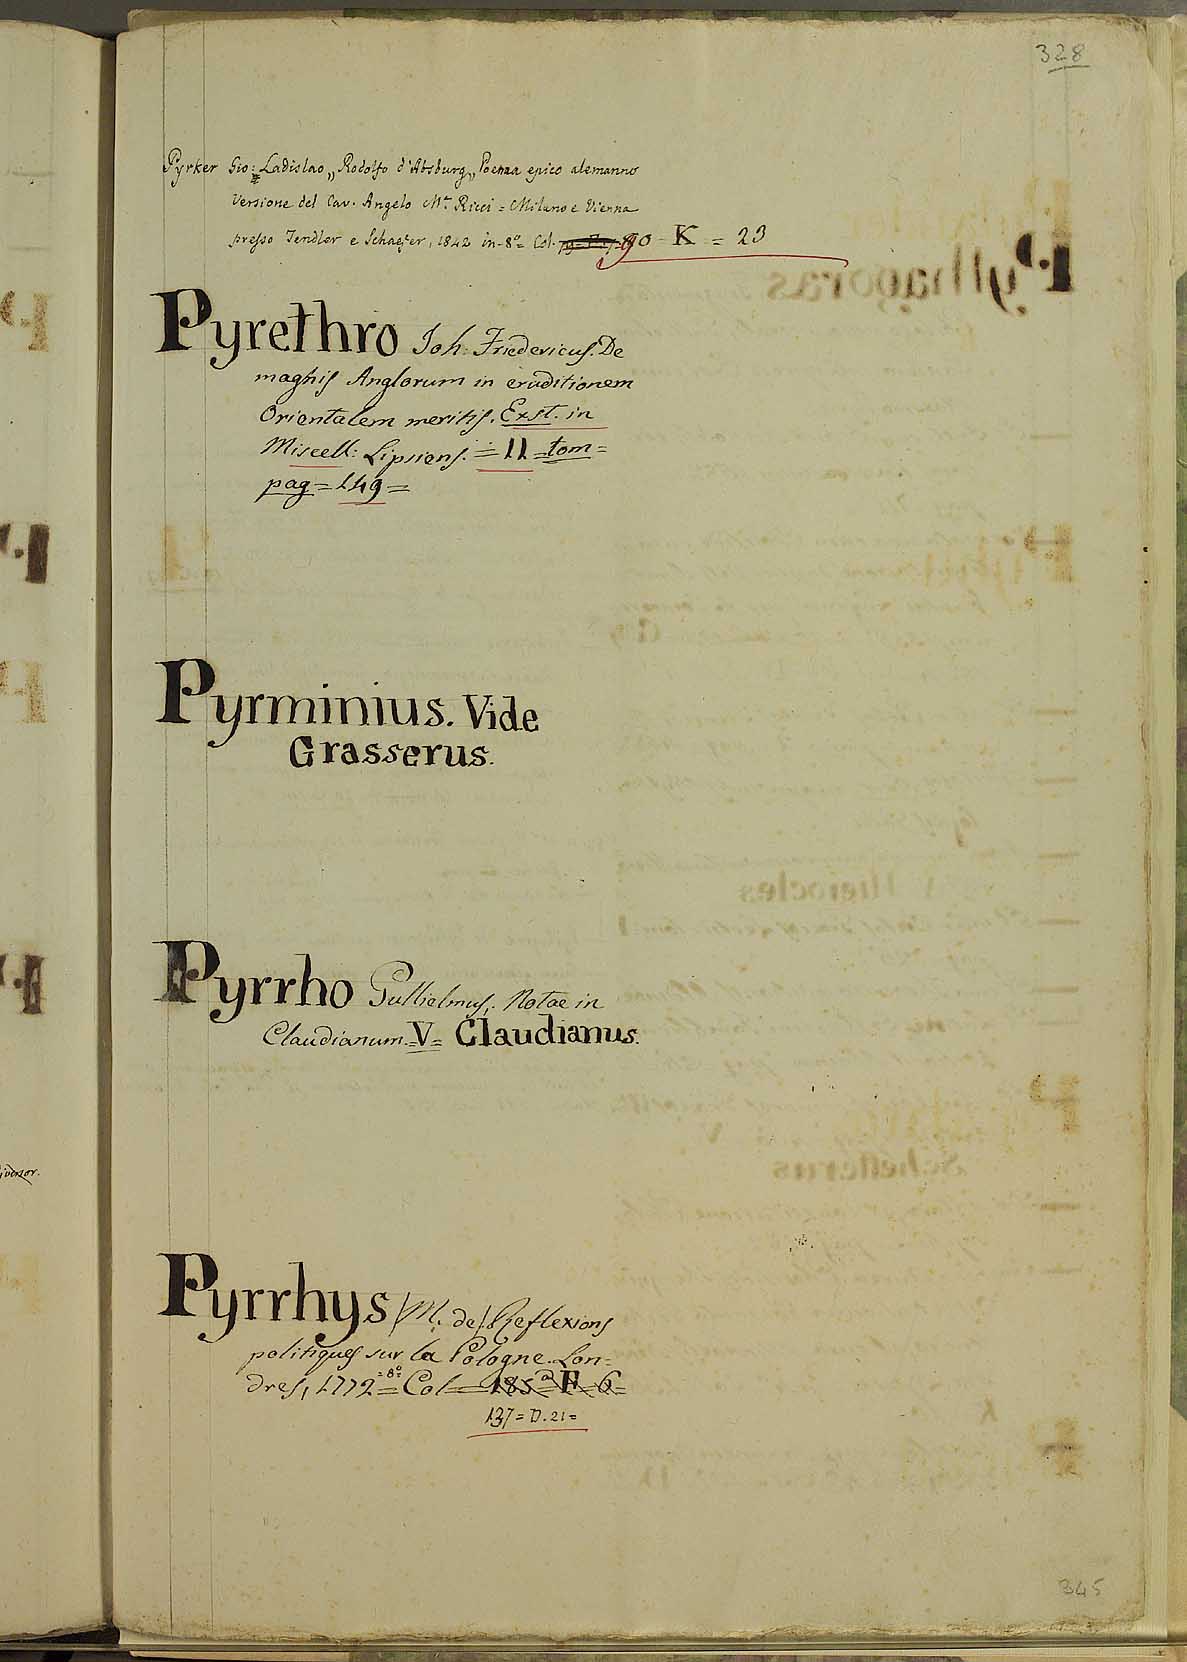 328
Pyrker Gio: Ladislao „ Rodolfo d'Absburg „ Poema epico alemanno
Versione del Cav. Angelo Mª Ricci = Milano e Vienna
presso Tendler e Schaefer, 1842 in-8º= Col. 90 - K = 23
Pyrethro Joh: Friedericus. De
maghis Anglorum in eruditionem
Orientalem meritis. Exst. in
Miscell: Lipsiens. = 11 = tom =
pag = 149 =
Pyrminius. Vide
Grasserus.
Pyrrho Gullielmus, Notae in
Claudianum. =V= Claudianus.
Pyrrhys /M. de/ Reflexions
politiques sur la Pologne. Lon=
dres, 1772 =8º= Col = 185 = F = 6 =
137 = D. 21 =
345